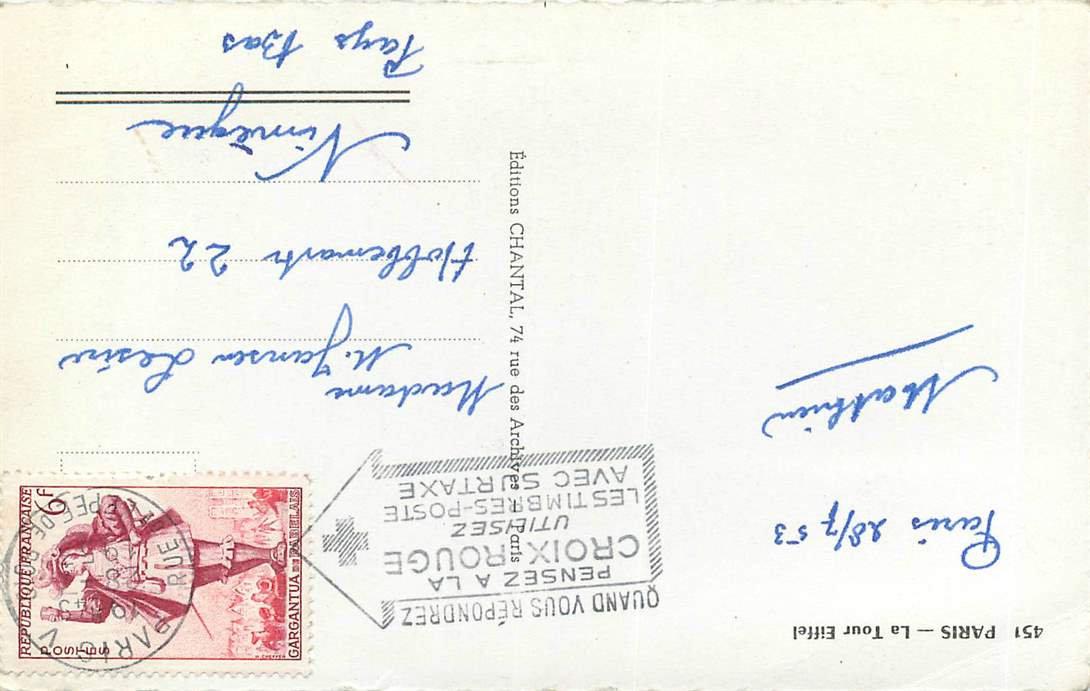 451 PARIS — La Tour Eiffel
Paris 28/7 53
Mathieu
Éditions CHANTAL, 74 rue des Archives - Paris
QUAND VOUS RÉPONDREZ
PENSEZ A LA
CROIX ROUGE
UTILISEZ
LES TIMBRES-POSTE
AVEC SURTAXE
REPUBLIQUE FRANÇAISE
6F
POSTES
GARGANTUA DE RABELAIS
PARIS V
RUE DE L'EPEE DE BOIS
Madame
M. Jansen Lesire
Hobbemastr 22
Nimègue
Pays Bas